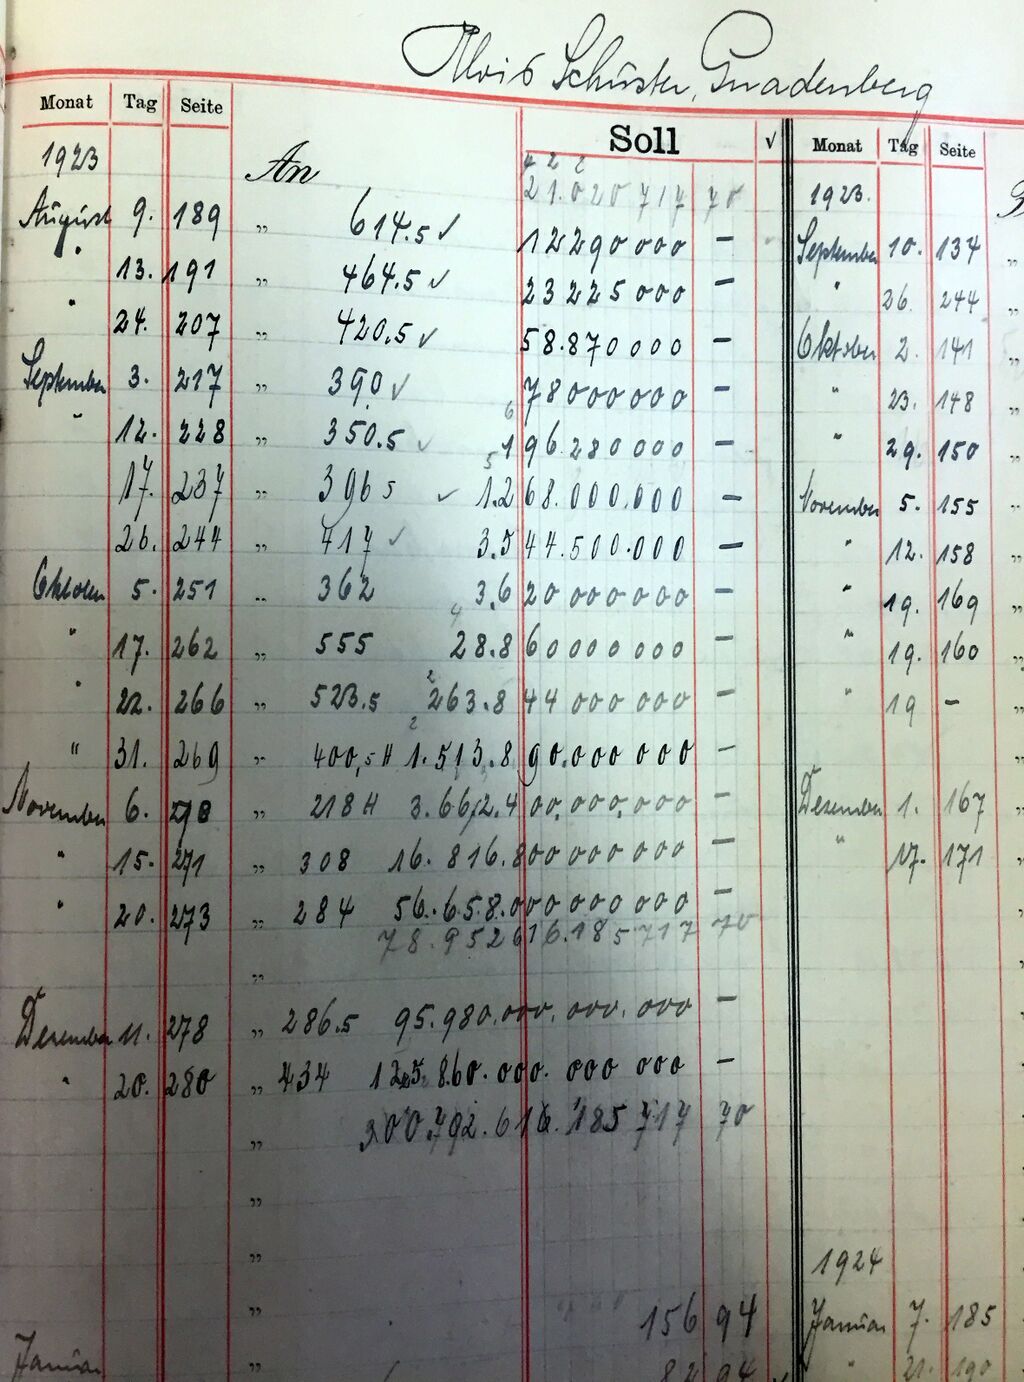 Alois Schuster, Gnadenberg
Monat Tag Seite Soll √ Monat Tag Seite
4 2 2
1923 An 21.020 717 70 1923.
August 9. 189 „ 614.5 ✓ 12290000 – September 10. 134 „
" 13. 191 „ 464.5 ✓ 23225000 – " 26. 244 „
" 24. 207 „ 420.5 ✓ 58.870000 – Oktober 2. 141 „
September 3. 217 „ 390 ✓ 78000000 – " 23. 148 „
" 12. 228 „ 350.5 ✓ 196.280000 – " 29. 150 „
17. 237 „ 396 5 ✓ 1.268.000.000 – November 5. 155 „
26. 244 „ 417 ✓ 3.544.500.000 – " 12. 158 „
Oktober 5. 251 „ 362 3.620000000 – " 19. 169 „
" 17. 262 „ 555 28.860000000 – " 19. 160 „
" 22. 266 „ 523.5 263.844000000 – " 19 –
" 31. 269 „ 400,5 H 1.513.890.000000 –
November 6. 270 „ 218 H 3.662.400,000,000 – Dezember 1. 167 „
" 15. 271 „ 308 16.816.800000000 – " 17. 171 „
" 20. 273 „ 284 56.658.000000000 –
„ 78.952616.185717 70
Dezember 11. 278 „ 286.5 95.980.000.000.000 –
" 20. 280 „ 434 125.860.000.000 000 –
„ 300.792.616.185 717 70
„
„ 1924
„ 156 94 Januar 7. 185
Januar „ 82 94 ✓ " 21. 190